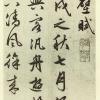 壁賦
戌之秋七月
與客汎舟遊
清風徐來